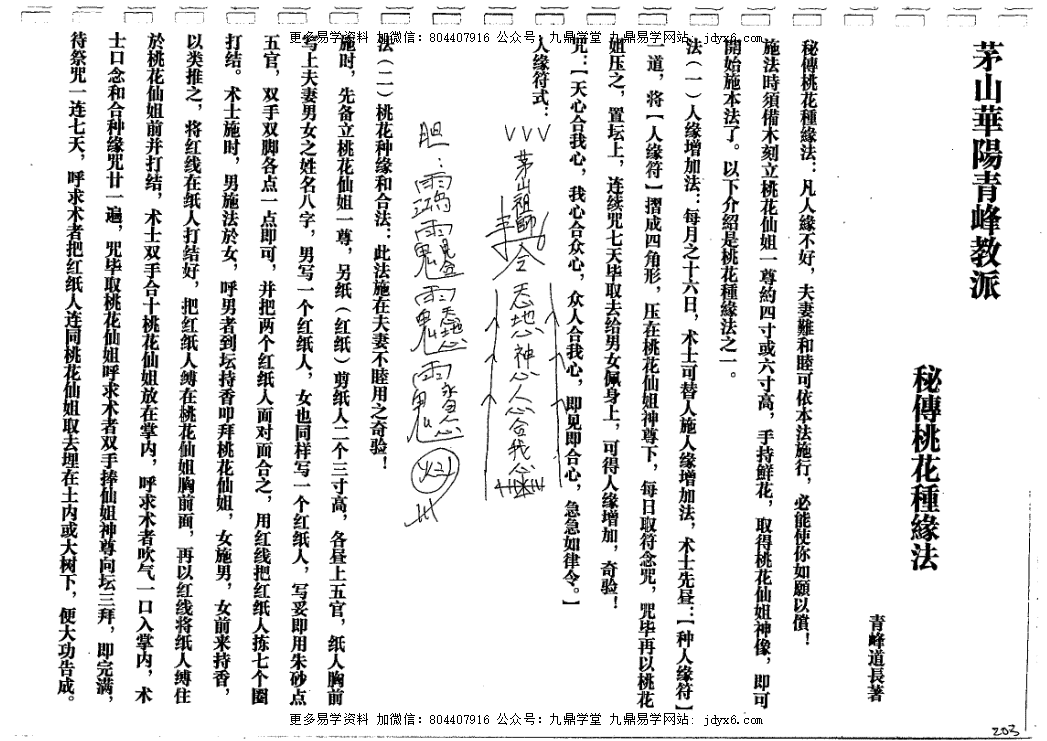 更多易学资料 加微信：804407916 公众号：九鼎学堂 九鼎易学网站：jdyx6.com
茅山華陽青峰教派
秘傳桃花種緣法
青峰道長著
秘傳桃花種緣法：凡人緣不好，夫妻難和睦可依本法施行，必能使你如願以償！
施法時須備木刻立桃花仙姐一尊約四寸或六寸高，手持鮮花，取得桃花仙姐神像，即可
開始施本法了。以下介紹是桃花種緣法之一。
法（一）人缘增加法：每月之十六日，术士可替人施人缘增加法，术士先昼：【种人缘符】
一道，将【人缘符】摺成四角形，压在桃花仙姐神尊下，每日取符念咒，咒毕再以桃花
姐压之，置坛上，连续咒七天毕取去给男女佩身上，可得人缘增加，奇验！
咒：【天心合我心，我心合众心，众人合我心，即见即合心，急急如律令。】
人缘符式：
茅山祖師
令
神心人心合我心
胆：
法（二）桃花种缘和合法：此法施在夫妻不睦用之奇验！
施时，先备立桃花仙姐一尊，另纸（红纸）剪纸人二个三寸高，各昼上五官，纸人胸前
写上夫妻男女之姓名八字，男写一个红纸人，女也同样写一个红纸人，写妥即用朱砂点
五官，双手双脚各点一点即可，并把两个红纸人面对面合之，用红线把红纸人拣七个圈
打结。术士施时，男施法於女，呼男者到坛持香叩拜桃花仙姐，女施男，女前来持香，
以类推之，将红线在纸人打结好，把红纸人缚在桃花仙姐胸前面，再以红线将纸人缚住
於桃花仙姐前并打结，术士双手合十桃花仙姐放在掌内，呼求术者吹气一口入掌内，术
士口念和合种缘咒廿一遍，咒毕取桃花仙姐呼求术者双手捧仙姐神尊向坛三拜，即完满，
待祭咒一连七天，呼求术者把红纸人连同桃花仙姐取去埋在土内或大树下，便大功告成。
更多易学资料 加微信：804407916 公众号：九鼎学堂 九鼎易学网站：jdyx6.com
203